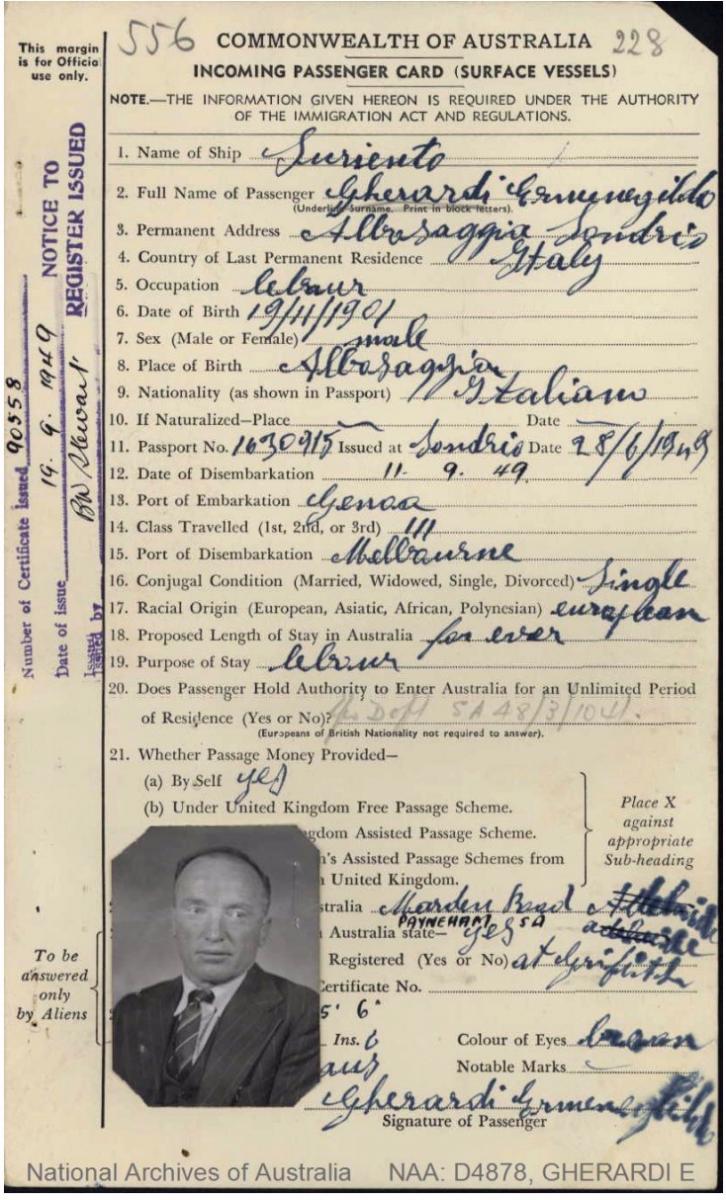 This margin
is for Official
use only.
556
COMMONWEALTH OF AUSTRALIA
228
INCOMING PASSENGER CARD (SURFACE VESSELS)
NOTE.—THE INFORMATION GIVEN HEREON IS REQUIRED UNDER THE AUTHORITY
OF THE IMMIGRATION ACT AND REGULATIONS.
1. Name of Ship Suriento
2. Full Name of Passenger Gherardi Ermenegildo
(Underline Surname. Print in block letters).
3. Permanent Address Albosaggia Sondrio
4. Country of Last Permanent Residence Italy
5. Occupation lebour
6. Date of Birth 19/11/1901
7. Sex (Male or Female) male
8. Place of Birth Albosaggia
9. Nationality (as shown in Passport) Italiano
10. If Naturalized—Place Date
11. Passport No. 1630915 Issued at Sondrio Date 28/6/1949
12. Date of Disembarkation 11. 9. 49.
13. Port of Embarkation Genoa
14. Class Travelled (1st, 2nd, or 3rd) III
15. Port of Disembarkation Melbourne
16. Conjugal Condition (Married, Widowed, Single, Divorced) Single
17. Racial Origin (European, Asiatic, African, Polynesian) european
18. Proposed Length of Stay in Australia for ever
19. Purpose of Stay lebour
20. Does Passenger Hold Authority to Enter Australia for an Unlimited Period
of Residence (Yes or No)? Dept SA 48/3/1041.
(Europeans of British Nationality not required to answer).
21. Whether Passage Money Provided—
(a) By Self yes
(b) Under United Kingdom Free Passage Scheme.
gdom Assisted Passage Scheme.
's Assisted Passage Schemes from
United Kingdom.
Place X
against
appropriate
Sub-heading
stralia Marden Road
PAYNEHAM SA
Australia state— yes
Registered (Yes or No) at Griffith
Certificate No.
To be
answered
only
by Aliens
5' 6"
Ins. 6 Colour of Eyes brown
Notable Marks
Gherardi Ermenegildo
Signature of Passenger
Number of Certificate issued 90558
Date of issue 19. 9. 1949
Issued by BW Stewart
NOTICE TO
REGISTER ISSUED
National Archives of Australia NAA: D4878, GHERARDI E